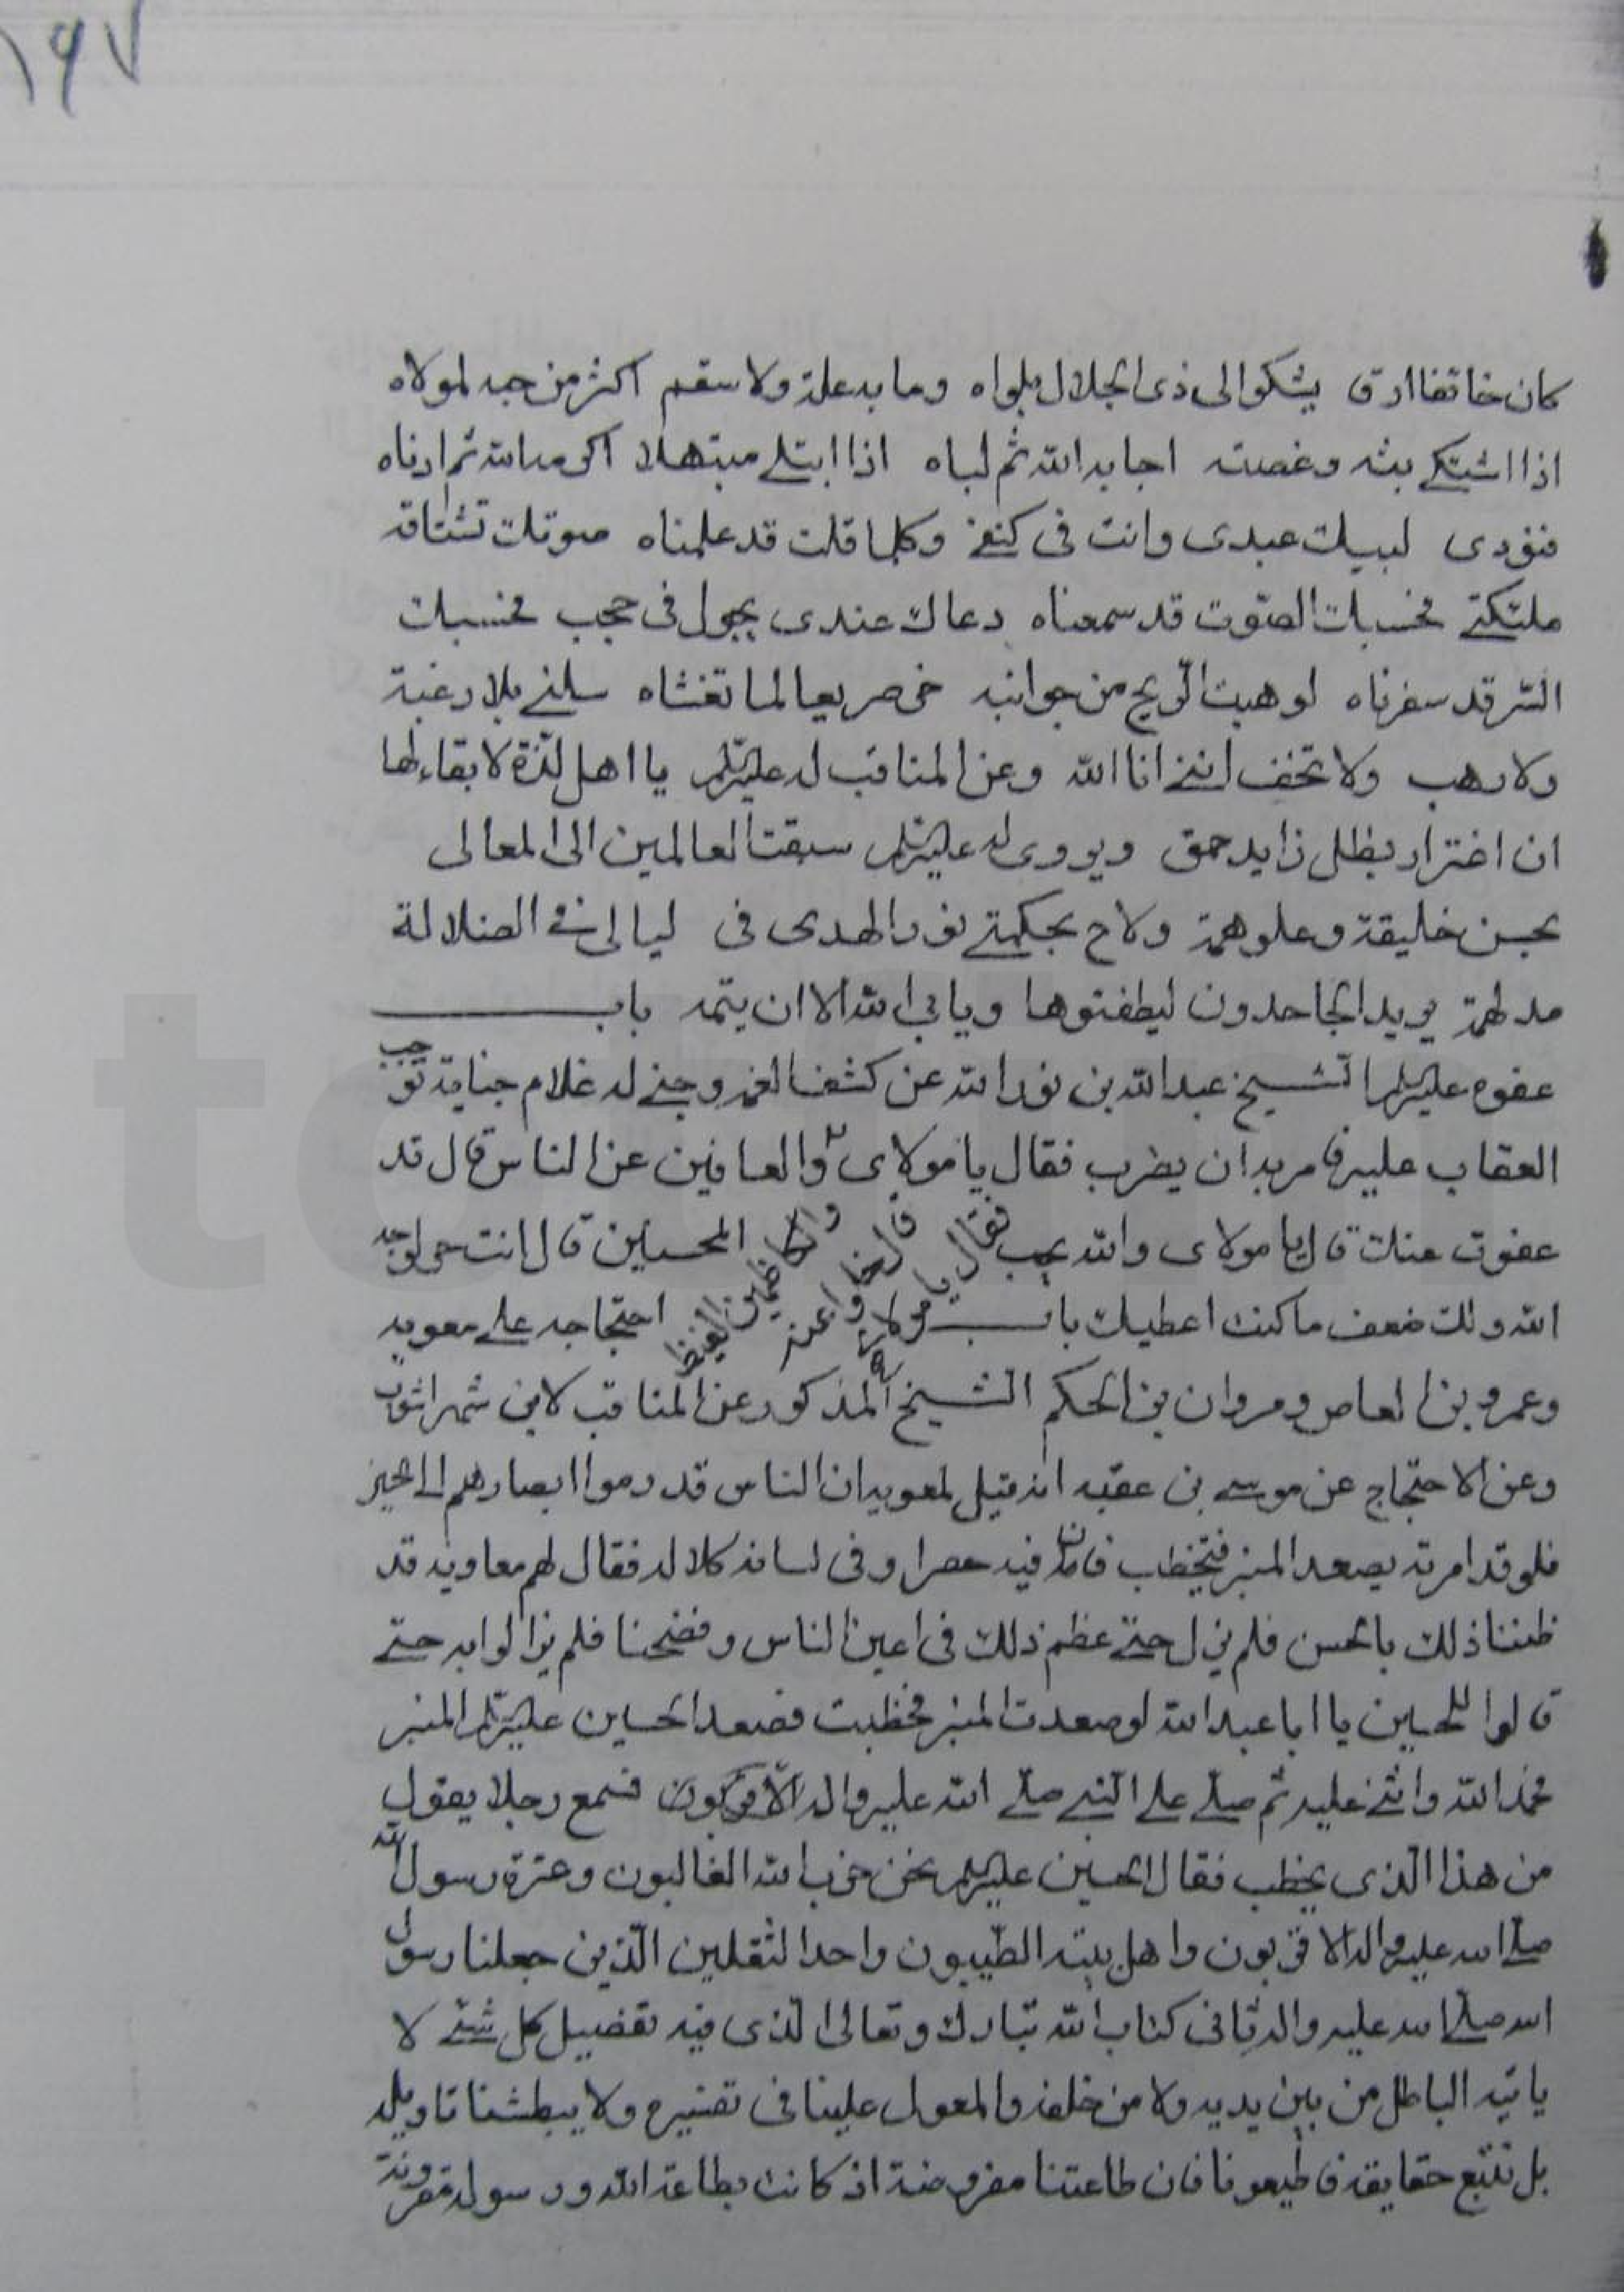 ١٩٧
كان خائفا ارق يشكو الى ذى الجلال بلواه وما به علة ولا سقم اكثر من حبه لمولاه
اذا اشتكى بثه وغصته اجابه الله ثم لباه اذا ابتلى مبتهلا اكرمه الله ثم ادناه
فنودى لبيك عبدى وانت فى كنفى وكلما قلت قد علمناه صوتك تشتاقه
ملئكتى فحسبك الصوت قد سمعناه دعاك عندى يجول فى حجب فحسبك
الستر قد سفرناه لو هبت الريح من جوانبه خر صريعا لما تغشاه سلنى بلا رغبة
ولا رهب ولا تخف اننى انا الله وعن المناقب له عليه السلم يا اهل لذة لا بقاء لها
ان اغترار بظل زايد حمق ويروى له عليه السلم سبقت العالمين الى المعالى
بحسن خليقة وعلو همة ولاح بحكمتى نور الهدى فى ليالى فى الضلالة
مدلهمة يريد الجاحدون ليطفئوها ويابى الله الا ان يتمه باب
عفوه عليه السلم الشيخ عبد الله بن نور الله عن كشف الغمه وجنى له غلام جناية توجب
العقاب عليه فامر به ان يضرب فقال يا مولاى والعافين عن الناس قال قد
عفوت عنك قال يا مولاى والله يحب المحسنين قال انت حر لوجه
فقال يا مولاى والكاظمين الغيظ قال خلوا عنه
الله ولك ضعف ما كنت اعطيك باب احتجاجه على معويه
وعمرو بن العاص ومروان بن الحكم الشيخ المذكور عن المناقب لابن شهراشوب
وعن الاحتجاج عن موسى بن عقبه انه قيل لمعويه ان الناس قد رموا ابصارهم الى الحسين
فلو قد امرته يصعد المنبر فتخطب فان فيه حصرا وفى لسانه كلاله فقال لهم معاويه قد
ظننا ذلك بالحسن فلم يزل حتى عظم ذلك فى اعين الناس وفضحنا فلم يزالوا به حتى
قالوا للحسين يا ابا عبد الله لو صعدت المنبر فخطبت فصعد الحسين عليه السلم المنبر
فحمد الله واثنى عليه ثم صلى على النبى صلى الله عليه واله الاقربون فسمع رجلا يقول
من هذا الذى يخطب فقال الحسين عليه السلم نحن حزب الله الغالبون وعترة رسول الله
صلى الله عليه واله الاقربون واهل بيته الطيبون واحد الثقلين الذين جعلنا رسول
الله صلى الله عليه واله ثانى كتاب الله تبارك وتعالى الذى فيه تفصيل كل شئ لا
ياتيه الباطل من بين يديه ولا من خلفه والمعول علينا فى تفسيره ولا يبطئنا تاويله
بل نتبع حقايقه فاطيعونا فان طاعتنا مفروضة اذ كانت بطاعة الله ورسوله مقرونة